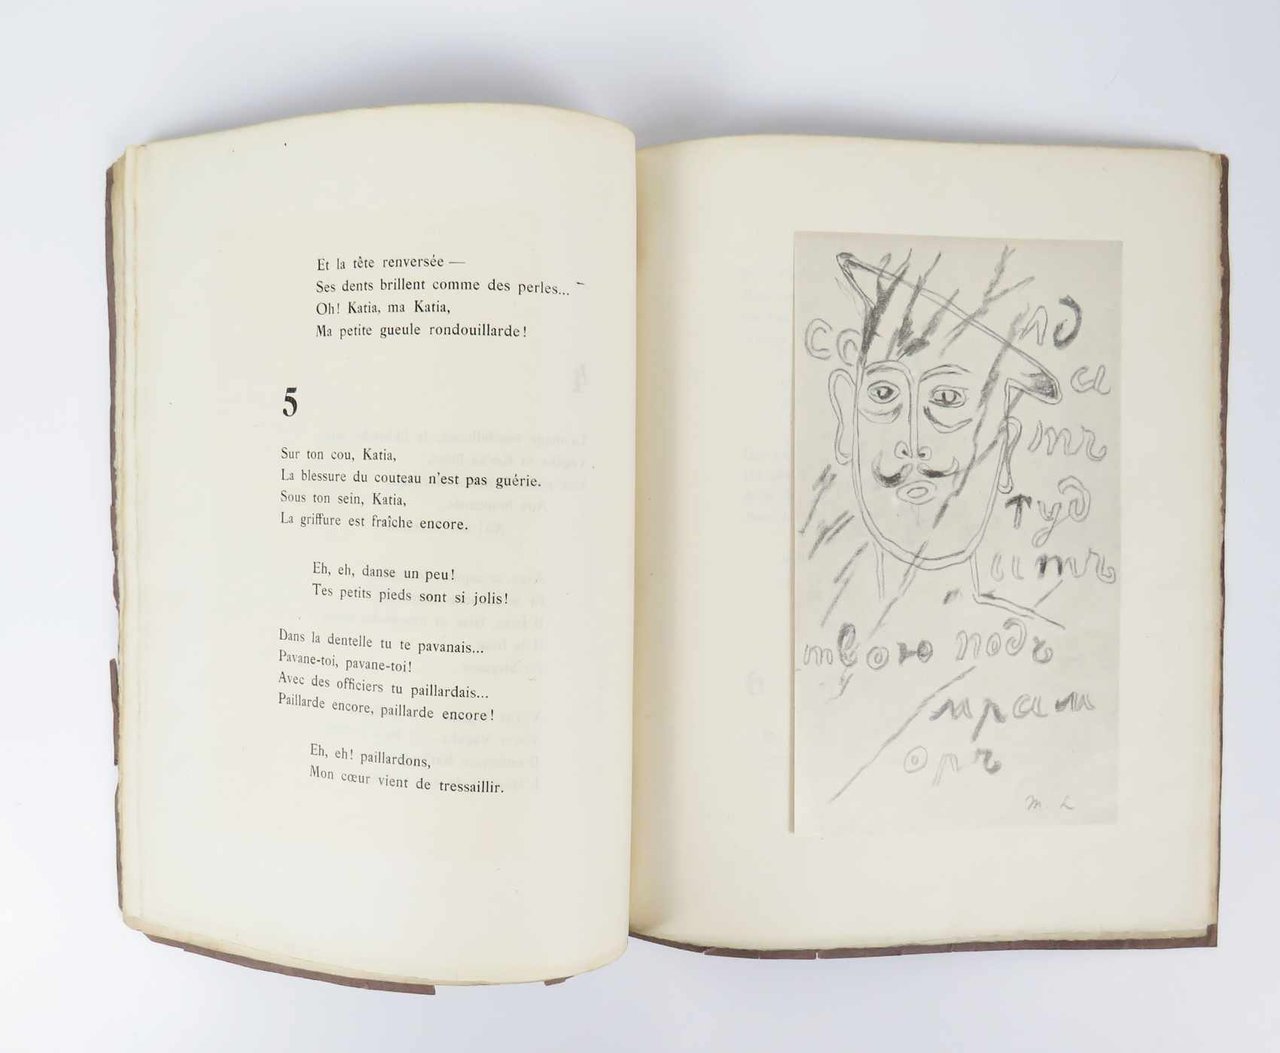 Et la tête renversée —
Ses dents brillent comme des perles...
Oh! Katia, ma Katia,
Ma petite gueule rondouillarde!
5
Sur ton cou, Katia,
La blessure du couteau n'est pas guérie.
Sous ton sein, Katia,
La griffure est fraîche encore.
Eh, eh, danse un peu!
Tes petits pieds sont si jolis!
Dans la dentelle tu te pavanais...
Pavane-toi, pavane-toi!
Avec des officiers tu paillardais...
Paillarde encore, paillarde encore!
Eh, eh! paillardons,
Mon cœur vient de tressaillir.
твою подъ
M L